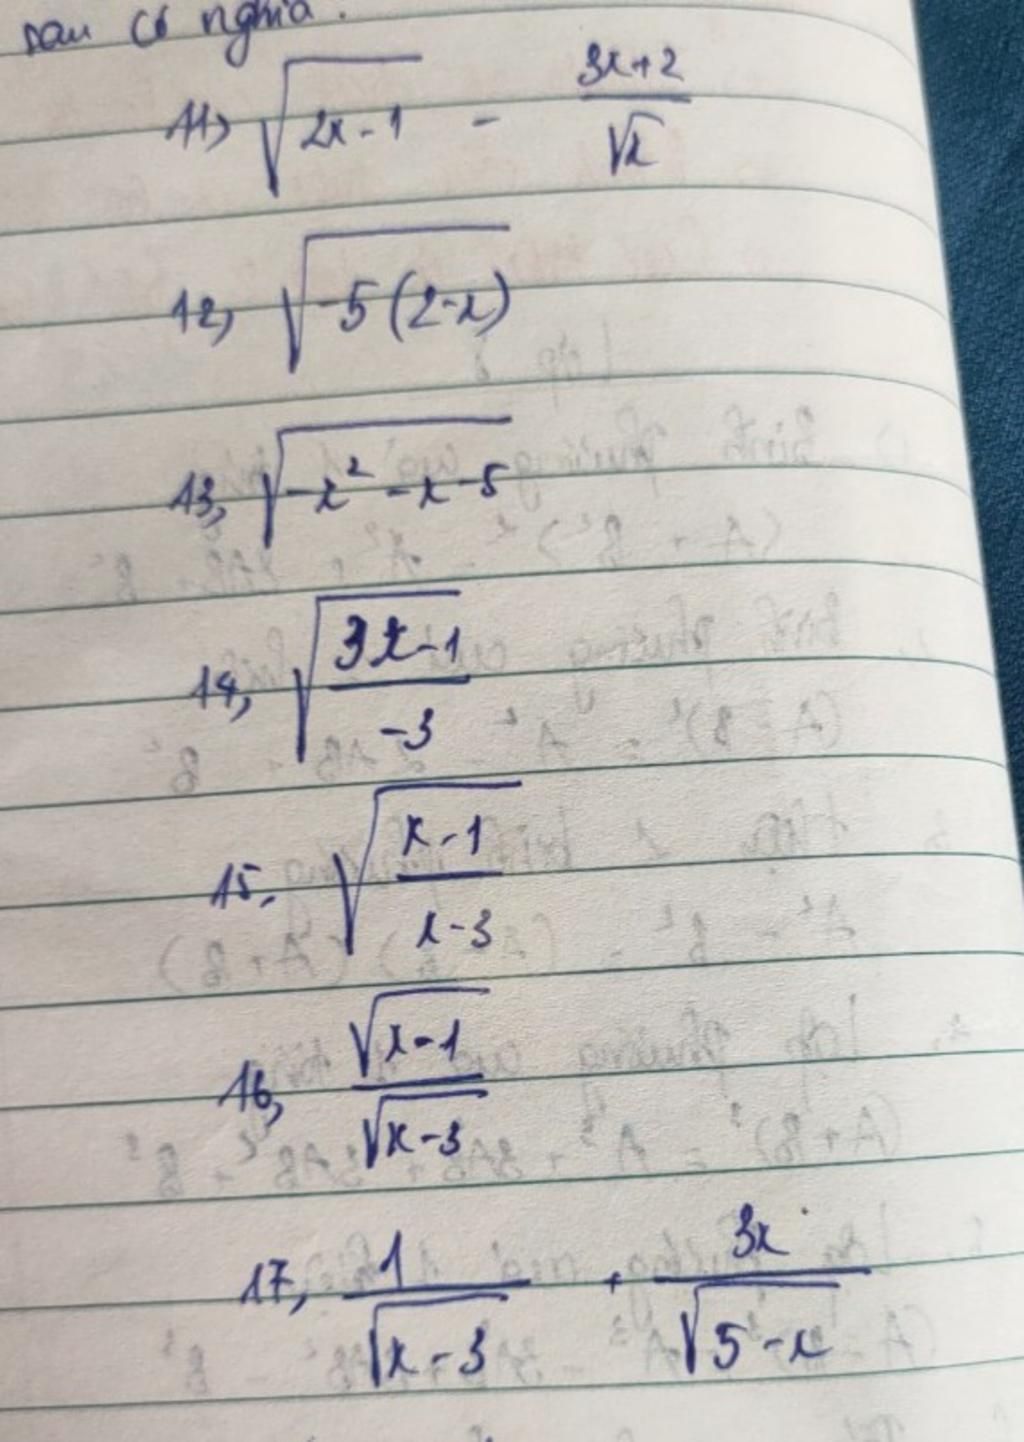 sau có nghĩa.
11, √(2x-1) - (3x+2)/√x
12, √(-5(2-x))
13, √(-x² - x - 5)
14, √((3x-1)/(-3))
15, √((x-1)/(x-3))
16, √(x-1)/√(x-3)
17, 1/√(x-3) + 3x/√(5-x)